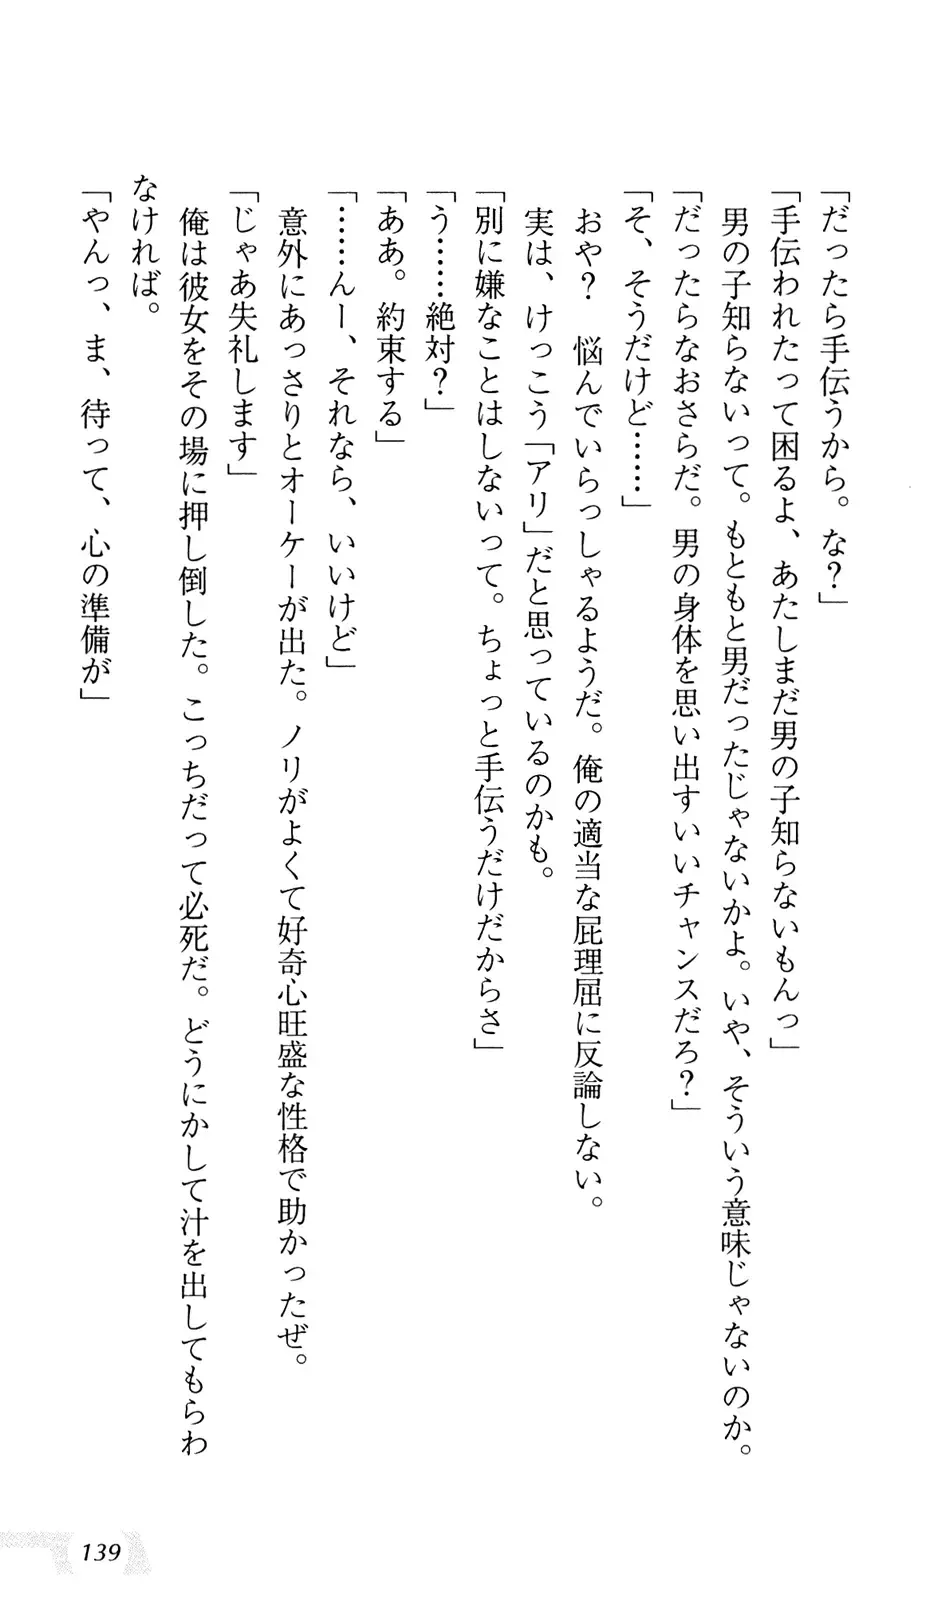 「だったら手伝うから。な?」
「手伝われたって困るよ、あたしまだ男の子知らないもんっ」
男の子知らないって。もともと男だったじゃないかよ。いや、そういう意味じゃないのか。
「だったらなおさらだ。男の身体を思い出すいいチャンスだろ?」
「そ、そうだけど……」
おや?　悩んでいらっしゃるようだ。俺の適当な屁理屈に反論しない。
実は、けっこう「アリ」だと思っているのかも。
「別に嫌なことはしないって。ちょっと手伝うだけだからさ」
「う……絶対?」
「ああ。約束する」
「……んー、それなら、いいけど」
意外にあっさりとオーケーが出た。ノリがよくて好奇心旺盛な性格で助かったぜ。
「じゃあ失礼します」
俺は彼女をその場に押し倒した。こっちだって必死だ。どうにかして汁を出してもらわ
なければ。
「やんっ、ま、待って、心の準備が」
139